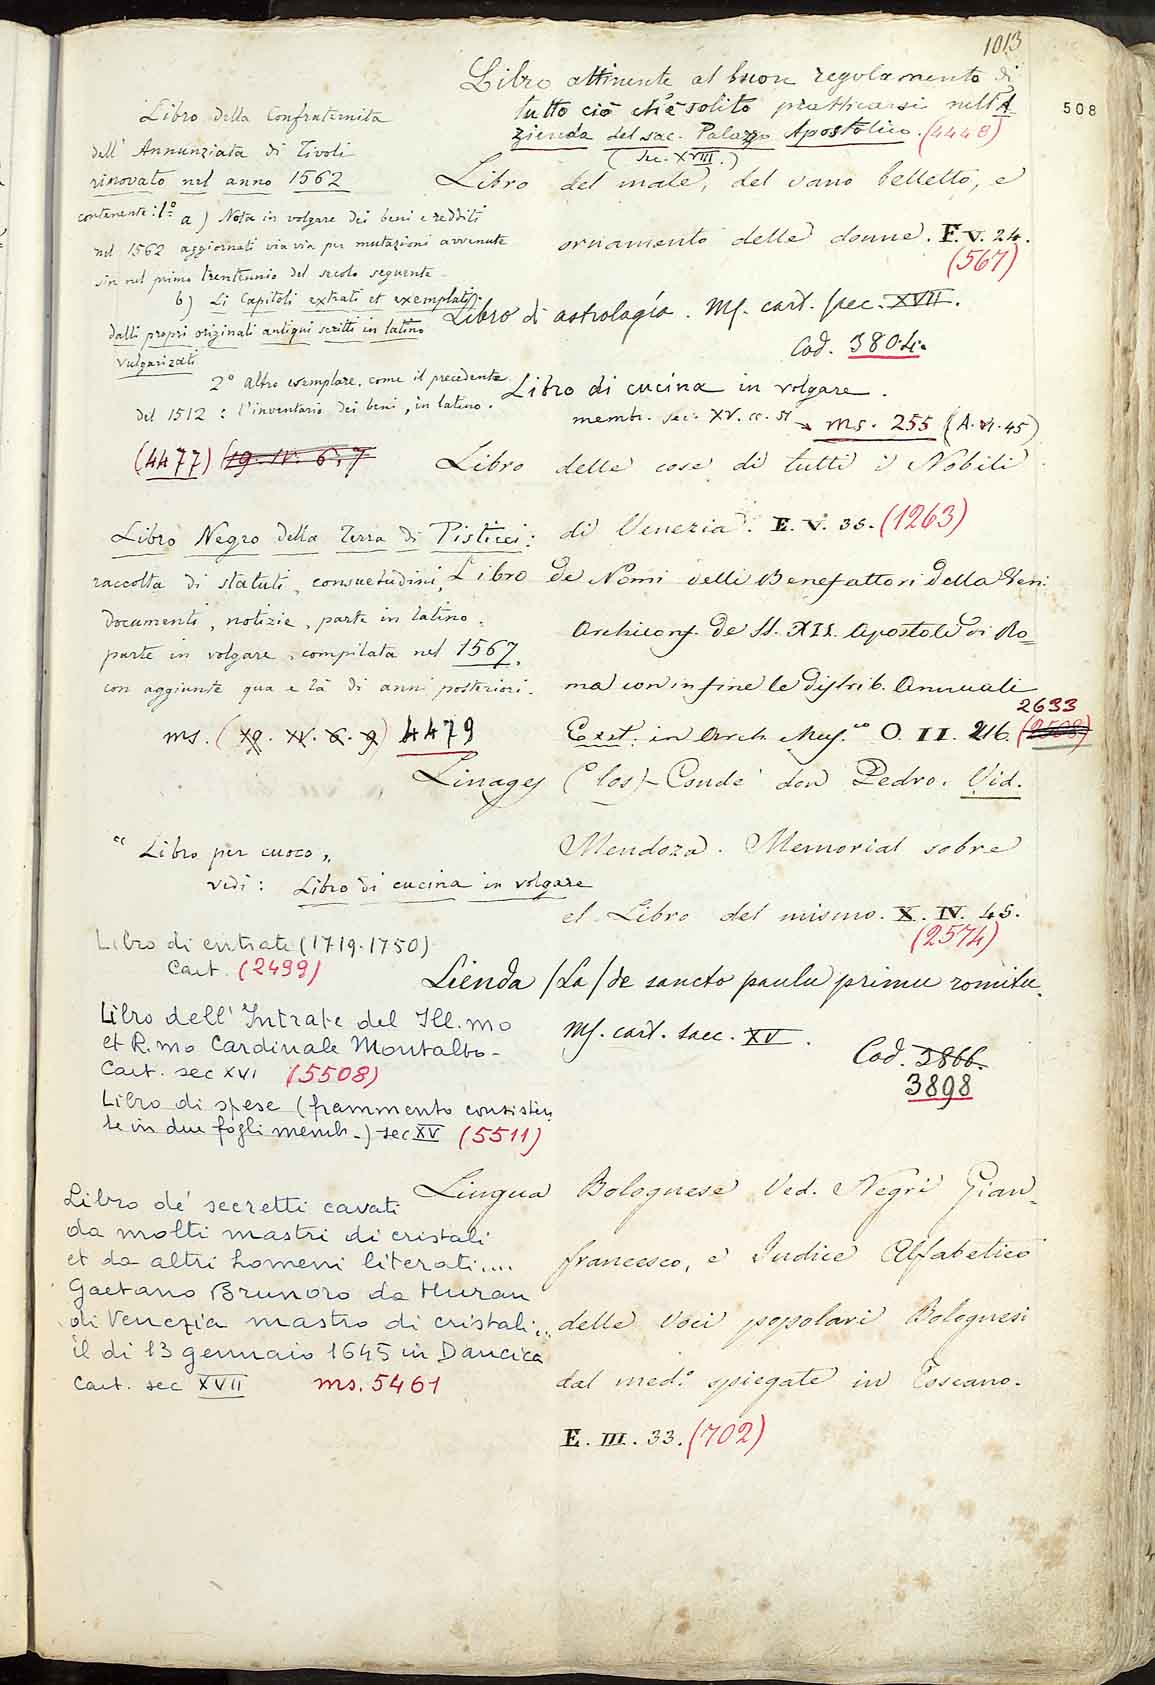 1013
508
Libro attinente al buon regolamento di
tutto ciò ch'è solito pratticarsi nell'A-
zienda del sac. Palazzo Apostolico. (4448)
(sec. XVIII.)
Libro del male, del vano belletto, e
ornamento delle donne. F. V. 24.
(567)
Libro di astrologia. Ms. cart. saec. XVII.
Cod. 3804.
Libro di cucina in volgare.
memb. sec. XV. cc. 51 → ms. 255 (A. VI. 45)
Libro delle cose di tutti i Nobili
di Venezia. E. V. 35. (1263)
Libro de Nomi delli Benefattori della Ven:
Archiconf. de SS. XII. Apostoli di Ro=
ma con in fine le distrib. Annuali
2633
Exst. in Arch. Mus.co O. II. 216. (2508)
Linages (los) Conde don Pedro. Vid.
Mendoza. Memorial sobre
el Libro del mismo. X. IV. 45.
(2574)
Lienda /La/ de sancto paulu primu romitu.
Ms. cart. saec. XV.
Cod. 3866.
3898
Lingua Bolognese Ved. Negri Gian-
francesco, e Indice Alfabetico
delle Voci popolari Bolognesi
dal med.o spiegate in Toscano.
E. III. 33. (702)
Libro della Confraternita
dell' Annunziata di Tivoli
rinovato nel anno 1562
contenente: 1.° a) Nota in volgare dei beni e redditi
nel 1562 aggiornati via via per mutazioni avvenute
sin nel primo trentennio del secolo seguente.
b) Li Capitoli extrati et exemplati
dalli propri originali antiqui scritti in latino
vulgarizati
2° Altro esemplare, come il precedente
del 1512: l'inventario dei beni, in latino.
(4477) (19. IV. 6. 7
Libro Negro della Terra di Pisticci:
raccolta di statuti, consuetudini,
documenti, notizie, parte in latino,
parte in volgare, compilata nel 1567,
con aggiunte qua e là di anni posteriori.
ms. (19. IV. 6. 9) 4479
"Libro per cuoco„
vedi: Libro di cucina in volgare
Libro di entrate (1719-1750)
Cart. (2499)
Libro dell'Intrate del Ill.mo
et R.mo Cardinale Montalto-
Cart. sec XVI (5508)
Libro di spese (frammento consisten
te in due fogli memb.) sec XV (5511)
Libro de' secretti cavati
da molti mastri di cristali
et da altri homeni literati....
Gaetano Brunoro da Muran
di Venezia mastro di cristali...
il di 13 gennaio 1645 in Dancica
Cart. sec XVII ms. 5461